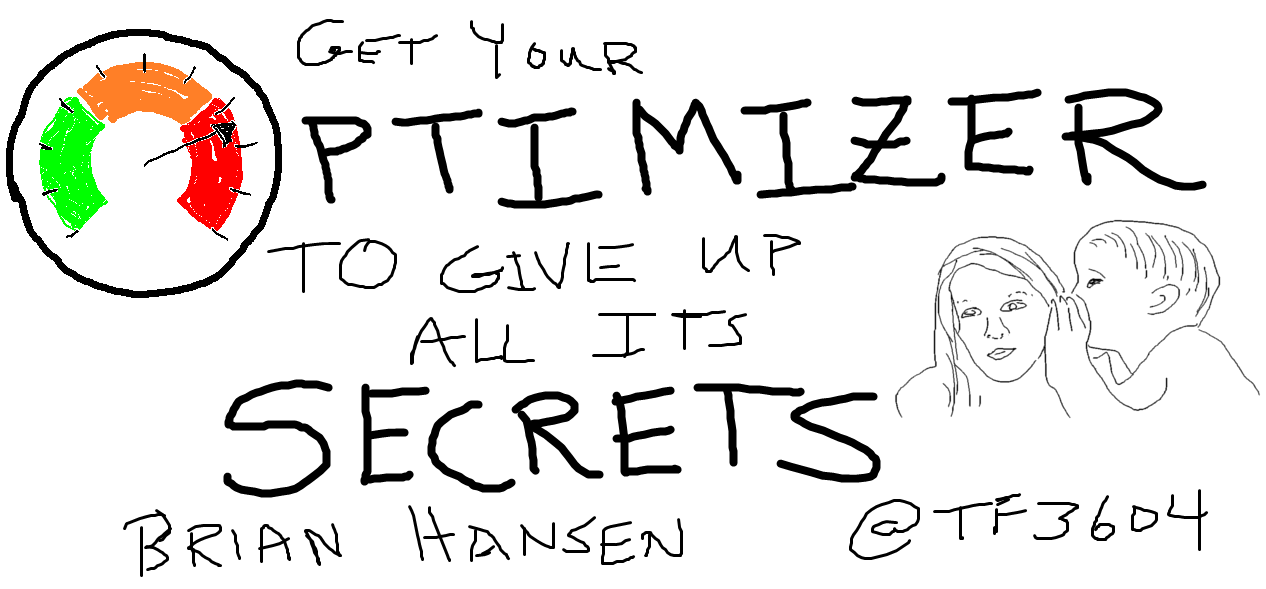 GET YOUR
PTIMIZER
TO GIVE UP
ALL ITS
SECRETS
BRIAN HANSEN
@TF3604